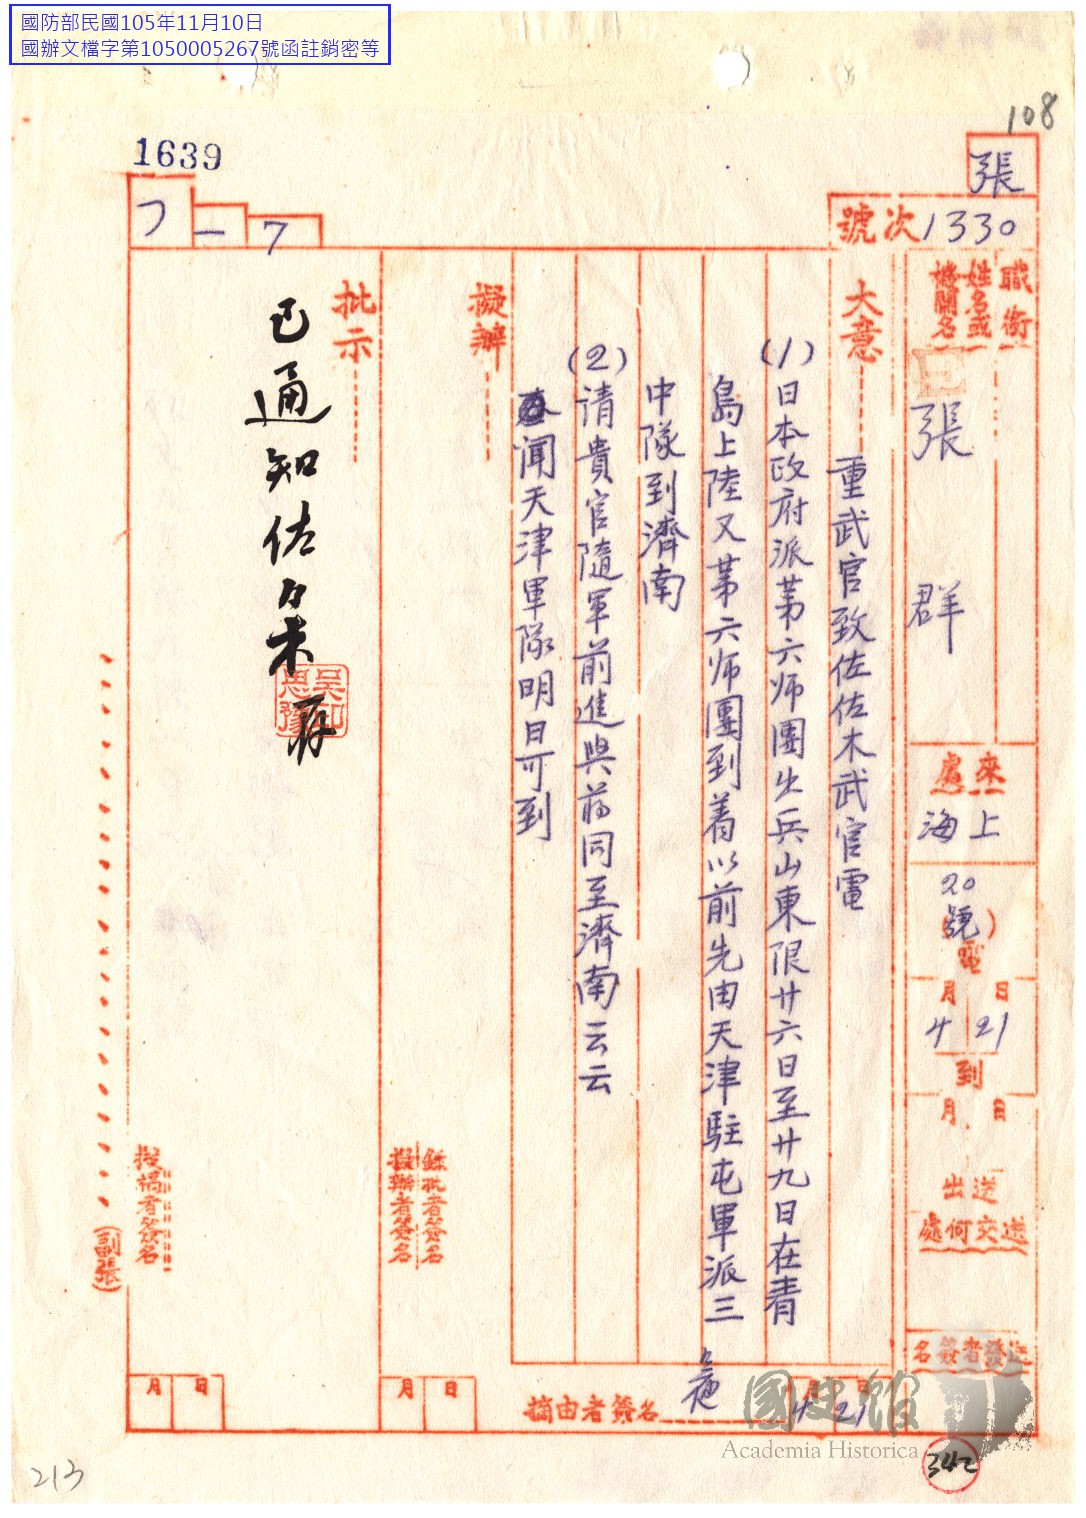 國防部民國105年11月10日
國辦文檔字第1050005267號函註銷密等
108
1639
張
號次1330
7
職銜
姓名或機關名
張群
來處
上海
20號
電
月 日
4 21
到
月 日
送出
送交何處
送發者簽名
大意
重武官致佐佐木武官電
(1)日本政府派第六师團出兵山東限廿六日至廿九日在青
島上陸又第六师團到着以前先由天津駐屯軍派三
中隊到濟南
(2)请貴官隨军前進與蒋同至濟南云云
闻天津軍隊明日可到
摘由者簽名
月 日
4 21
擬辦
錄批者簽名
擬辦者簽名
月 日
批示
已通知佐々木
存
吳思豫印
擬稿者簽名
月 日
(副張)
國史館
Academia Historica
342
213